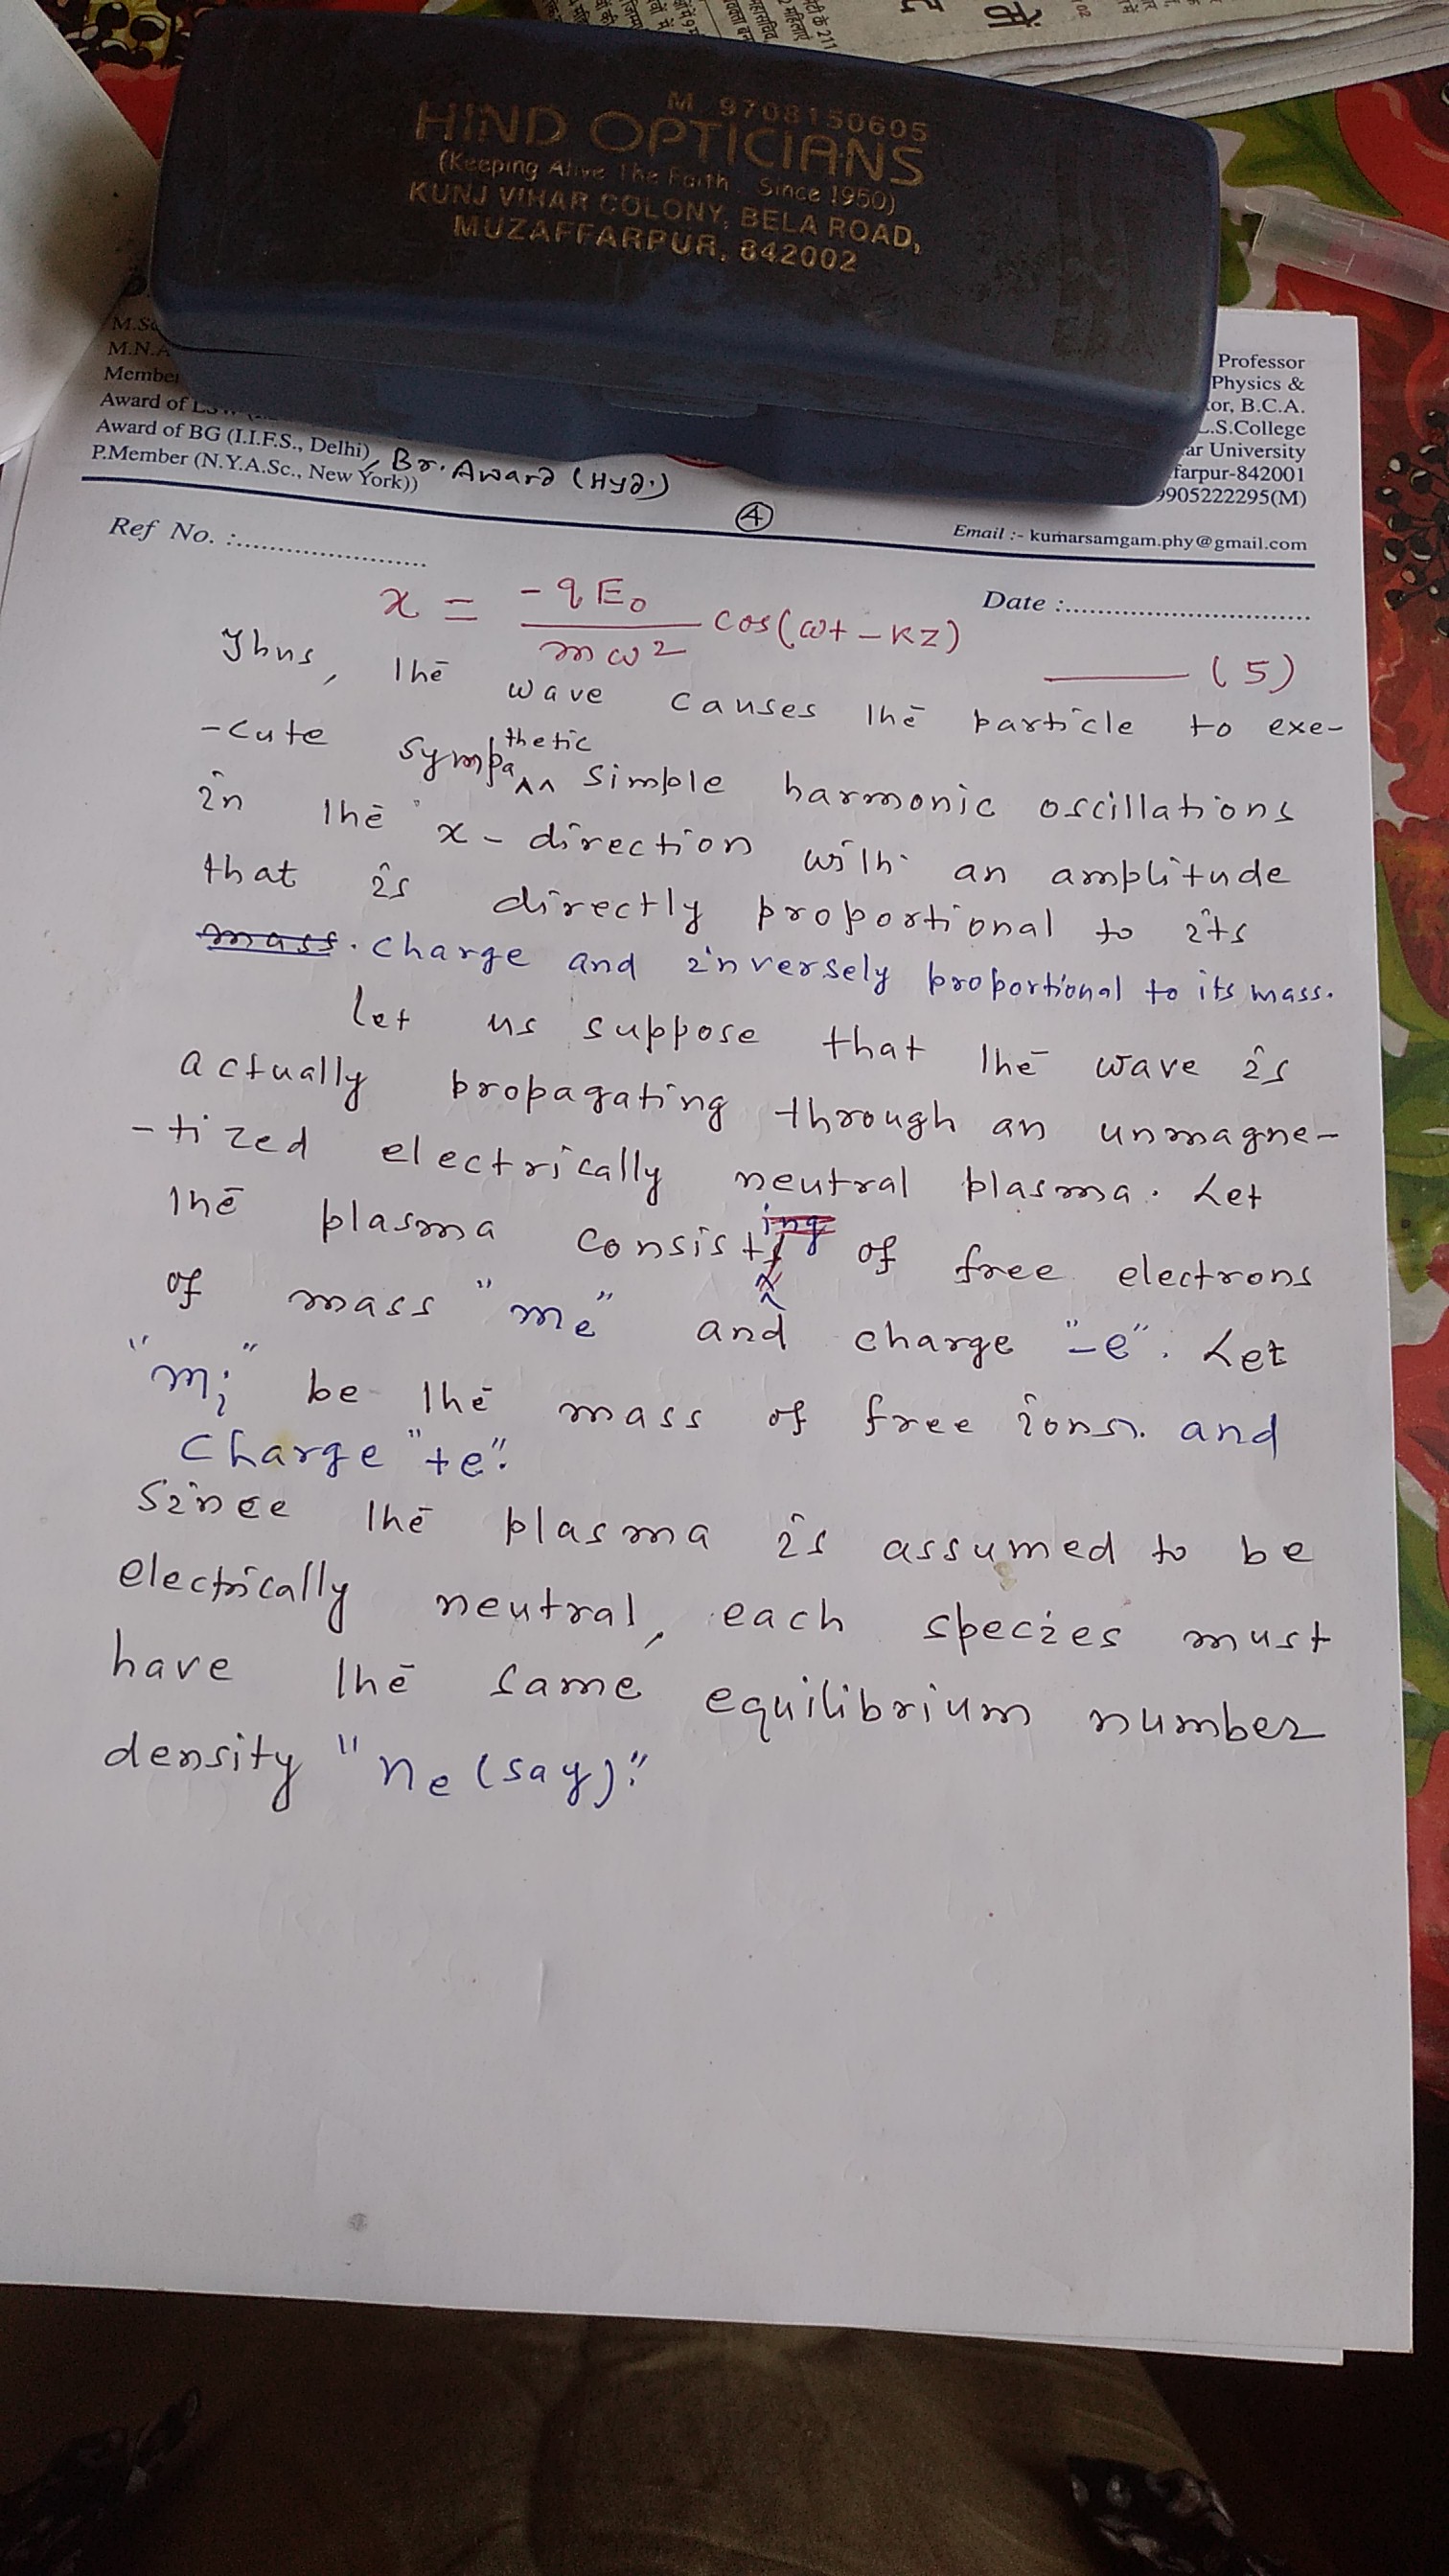 M 9708150605
HIND OPTICIANS
(Keeping Alive The Faith. Since 1950)
KUNJ VIHAR COLONY, BELA ROAD,
MUZAFFARPUR, 842002
M.Sc
M.N.A
Member
Award of
Award of BG (I.I.F.S., Delhi), Br. Award (Hyd.)
P.Member (N.Y.A.Sc., New York))
Professor
Physics &
tor, B.C.A.
L.S.College
ar University
farpur-842001
9905222295(M)
4
Email :- kumarsamgam.phy@gmail.com
Ref No. :.....................
Date :.................................
x = -qE₀/mω² cos(ωt - kz) —— (5)
Thus, the wave causes the particle to exe-
-cute sympathetic simple harmonic oscillations
in the x-direction with an amplitude
that is directly proportional to its
mass. charge and inversely proportional to its mass.
Let us suppose that the wave is
actually propagating through an unmagne-
-tized electrically neutral plasma. Let
the plasma consisting of free electrons
of mass "me" and charge "-e". Let
"mi" be the mass of free ions. and
charge "+e".
Since the plasma is assumed to be
electrically neutral, each species must
have the same equilibrium number
density "ne (say)."